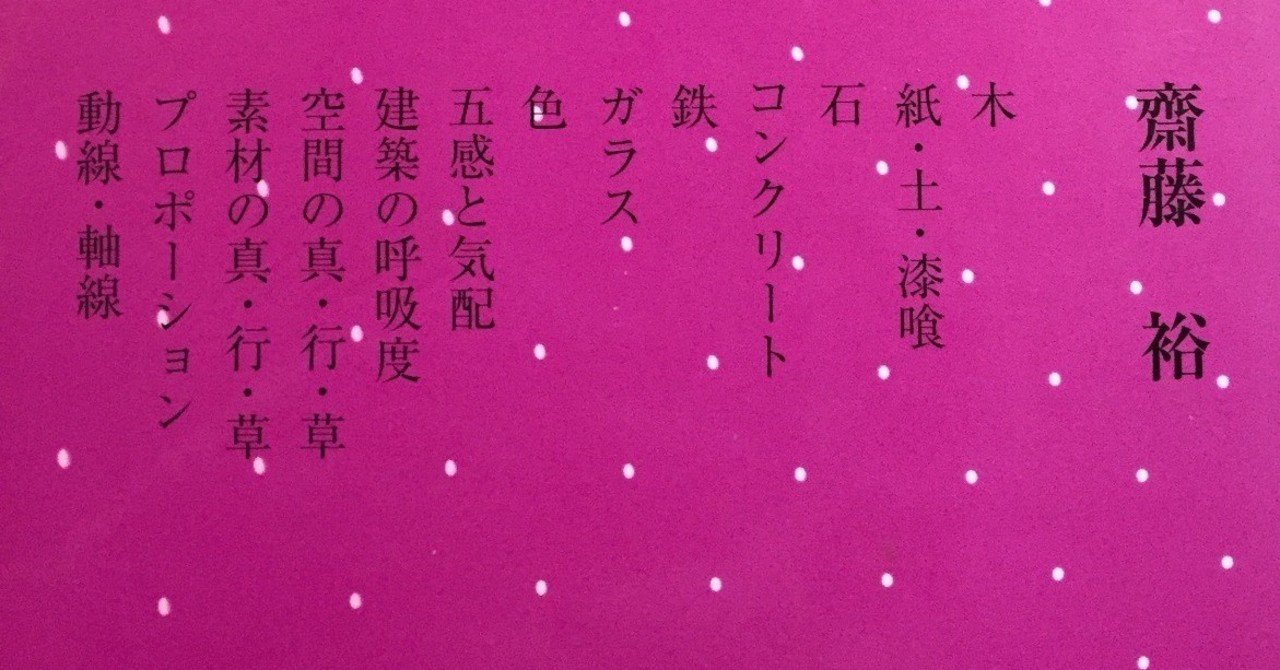 齋藤 裕
木
紙・土・漆喰
石
コンクリート
鉄
ガラス
色
五感と気配
建築の呼吸度
空間の真・行・草
素材の真・行・草
プロポーション
動線・軸線